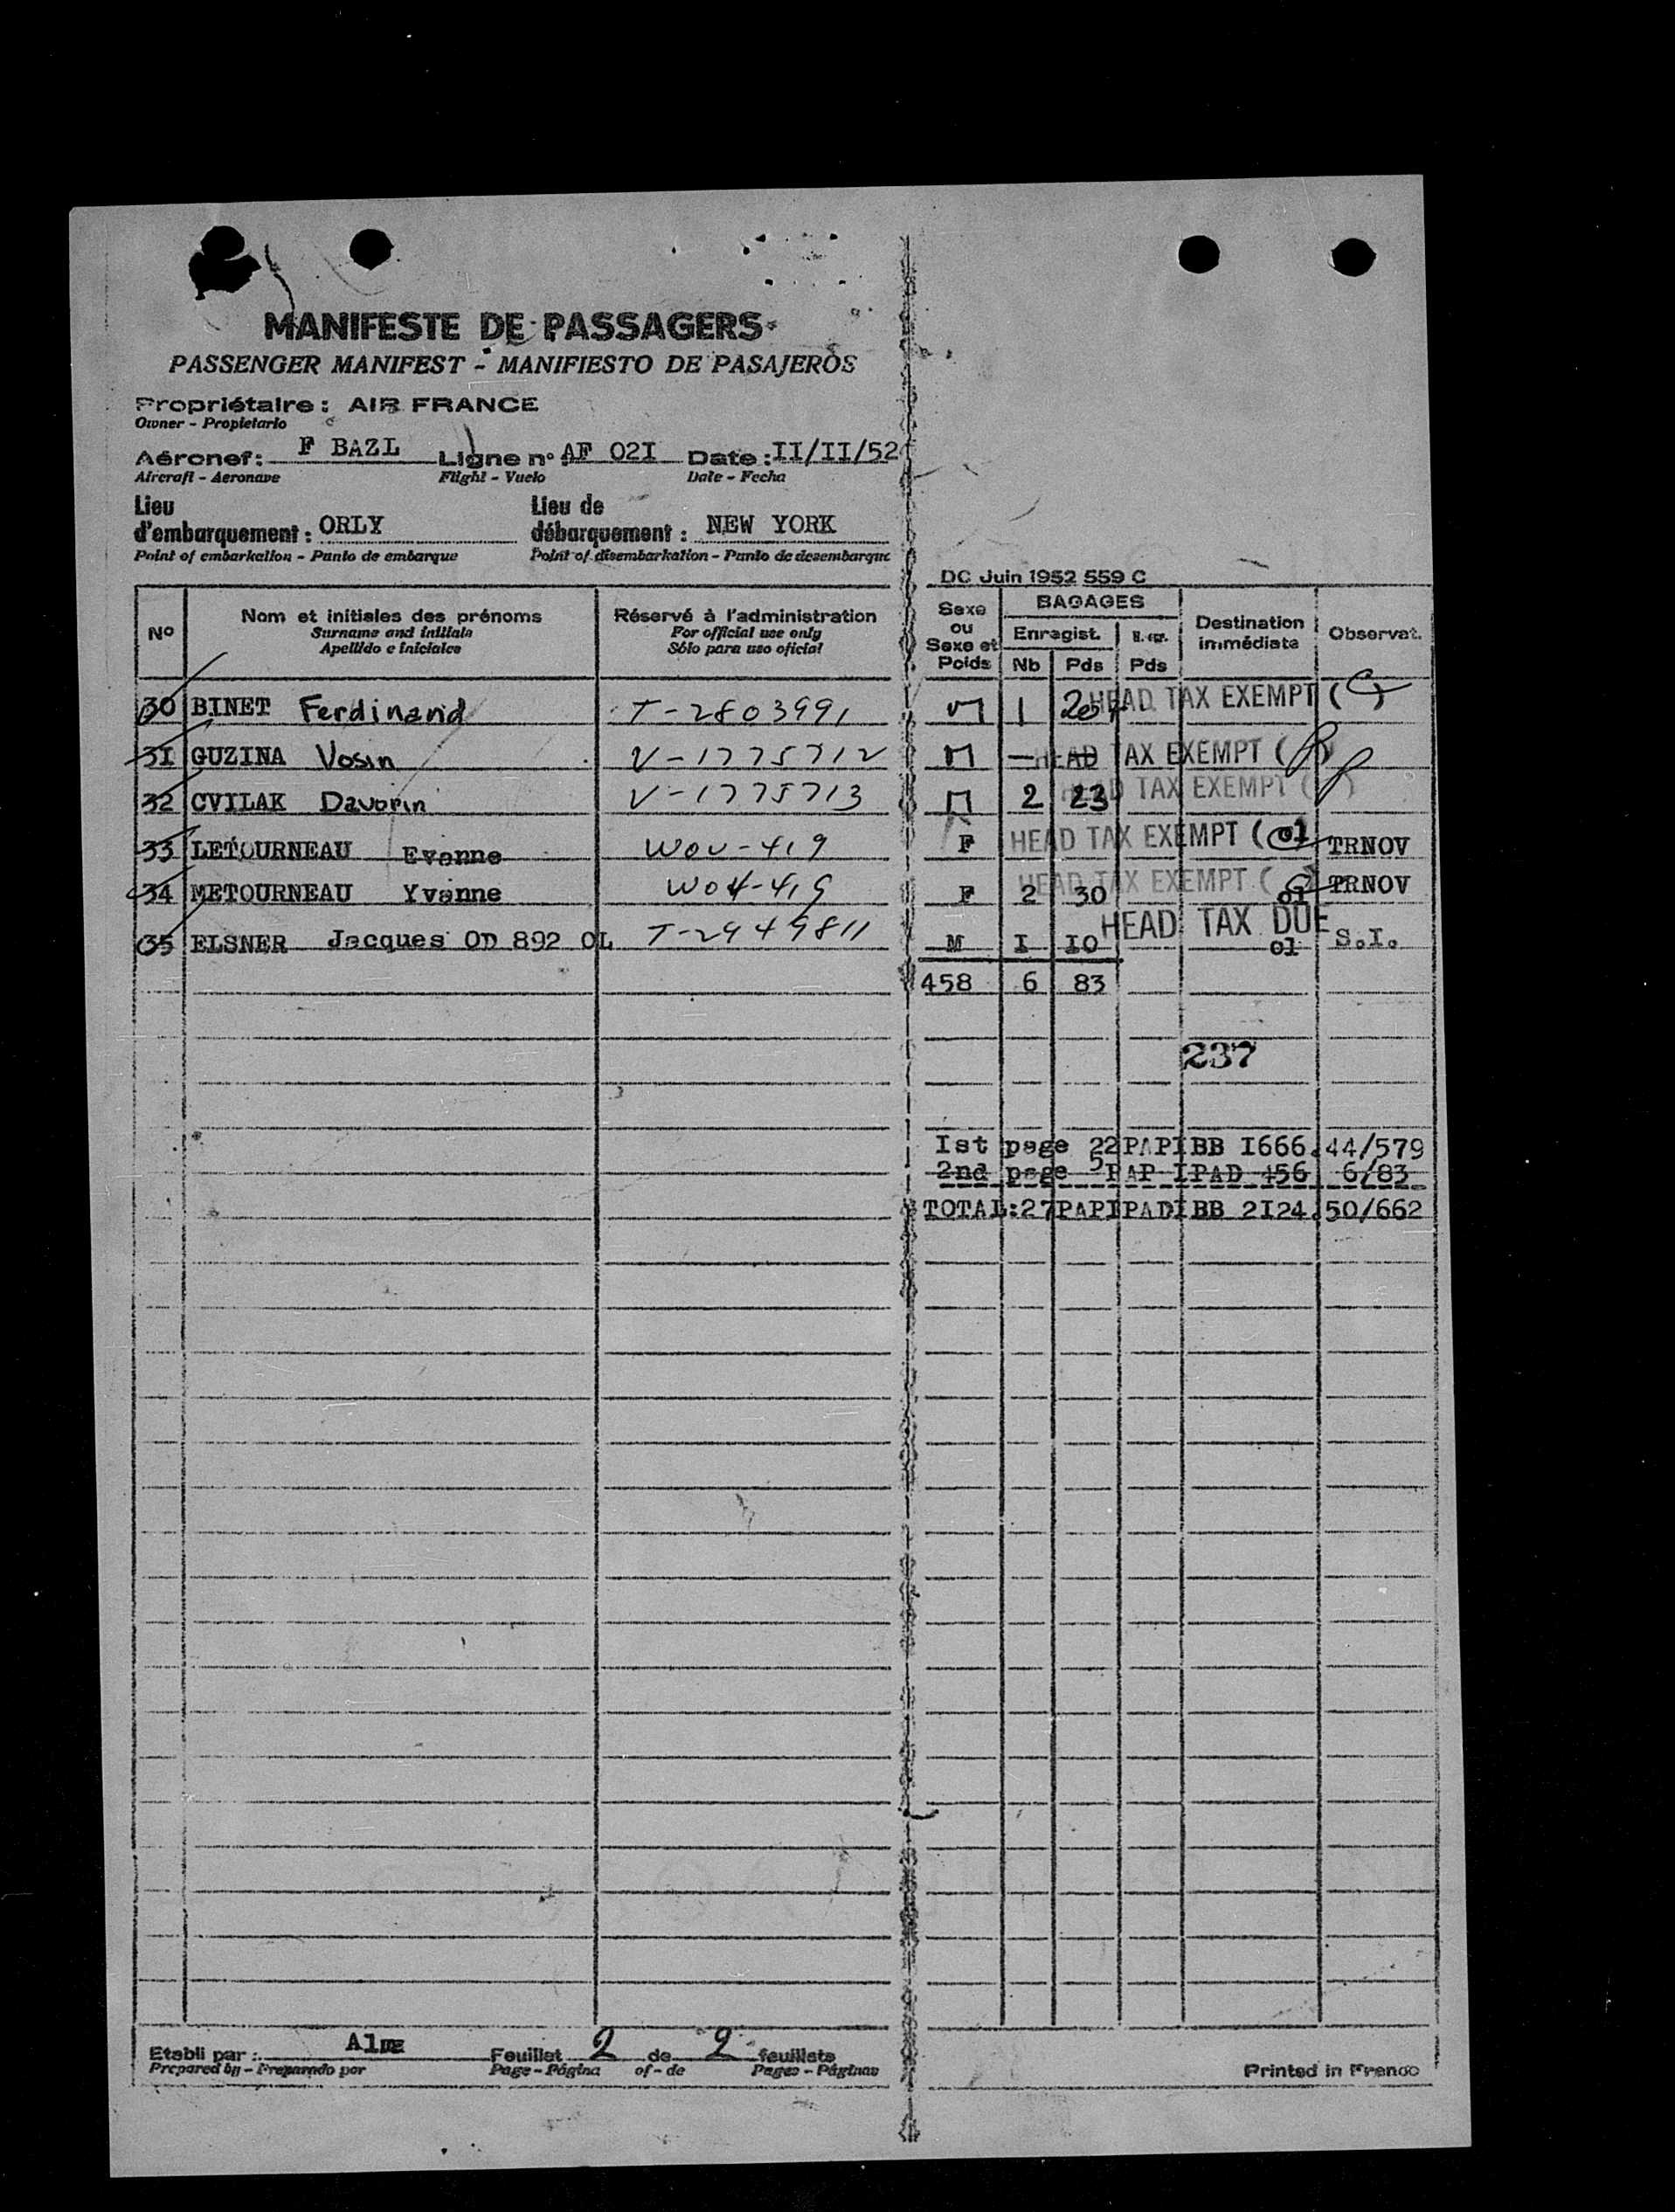 MANIFESTE DE PASSAGERS
PASSENGER MANIFEST - MANIFIESTO DE PASAJEROS
Propriétaire : AIR FRANCE
Owner - Propietario
Aéronef : F BAZL Ligne n° : AF 02I Date : II/II/52
Aircraft - Aeronave Flight - Vuelo Date - Fecha
Lieu d'embarquement : ORLY Lieu de débarquement : NEW YORK
Point of embarkation - Punto de embarque Point of disembarkation - Punto de desembarque
DC Juin 1952 559 C
N° Nom et initiales des prénoms Réservé à l'administration Sexe ou Sexe et Poids BAGAGES Destination immédiate Observat.
Surname and initials For official use only Enregist.
Apellido e iniciales Sólo para uso oficial Nb Pds Pds
30 BINET Ferdinand T-2803991 M 1 20 HEAD TAX EXEMPT (
3I GUZINA Vosin V-1775712 M — HEAD TAX EXEMPT (
32 CVILAK Davorin V-1775713 M 2 23 HEAD TAX EXEMPT ( )
33 LETOURNEAU Evonne WOU-419 F HEAD TAX EXEMPT ( ol TRNOV
34 METOURNEAU Yvanne W04-419 F 2 30 HEAD TAX EXEMPT ( ol TRNOV
35 ELSNER Jacques OD 892 OL T-2949811 M I IO HEAD TAX DUE ol S.I.
458 6 83
237
Ist page 22PAPIBB I666.44/579
2nd page 5PAP IPAD 456 6/83
TOTAL:27PAPIPADIBB 2I24.50/662
Etabli par : Alme Feuillet 2 de 2 feuillets
Prepared by - Preparado por Page - Página of - de Pages - Páginas
Printed in France